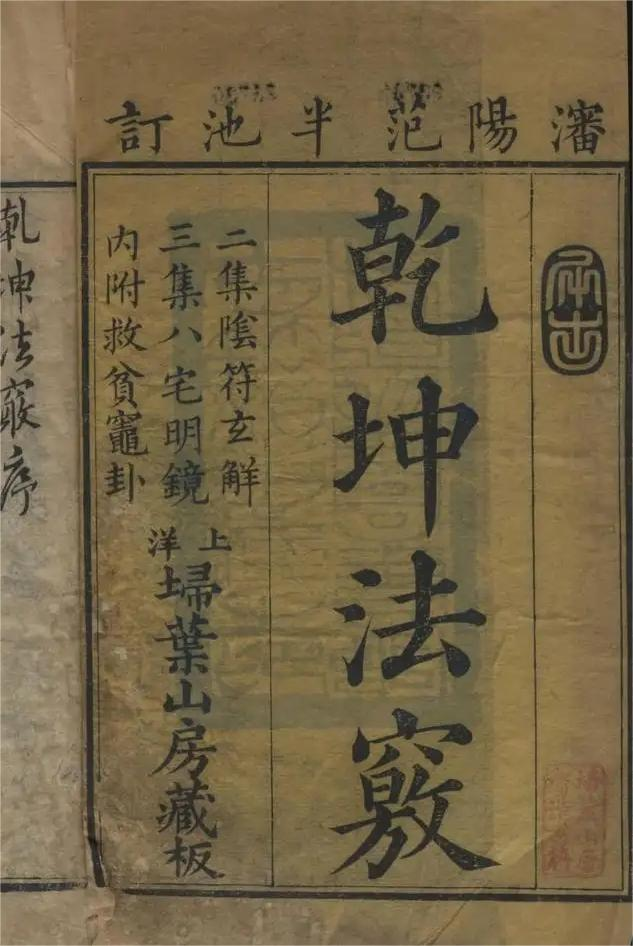 瀋陽范半池訂
乾坤法竅
二集陰符玄觧
三集八宅明鏡
內附救貧竈卦
上洋
埽葉山房藏板
乾坤法竅序